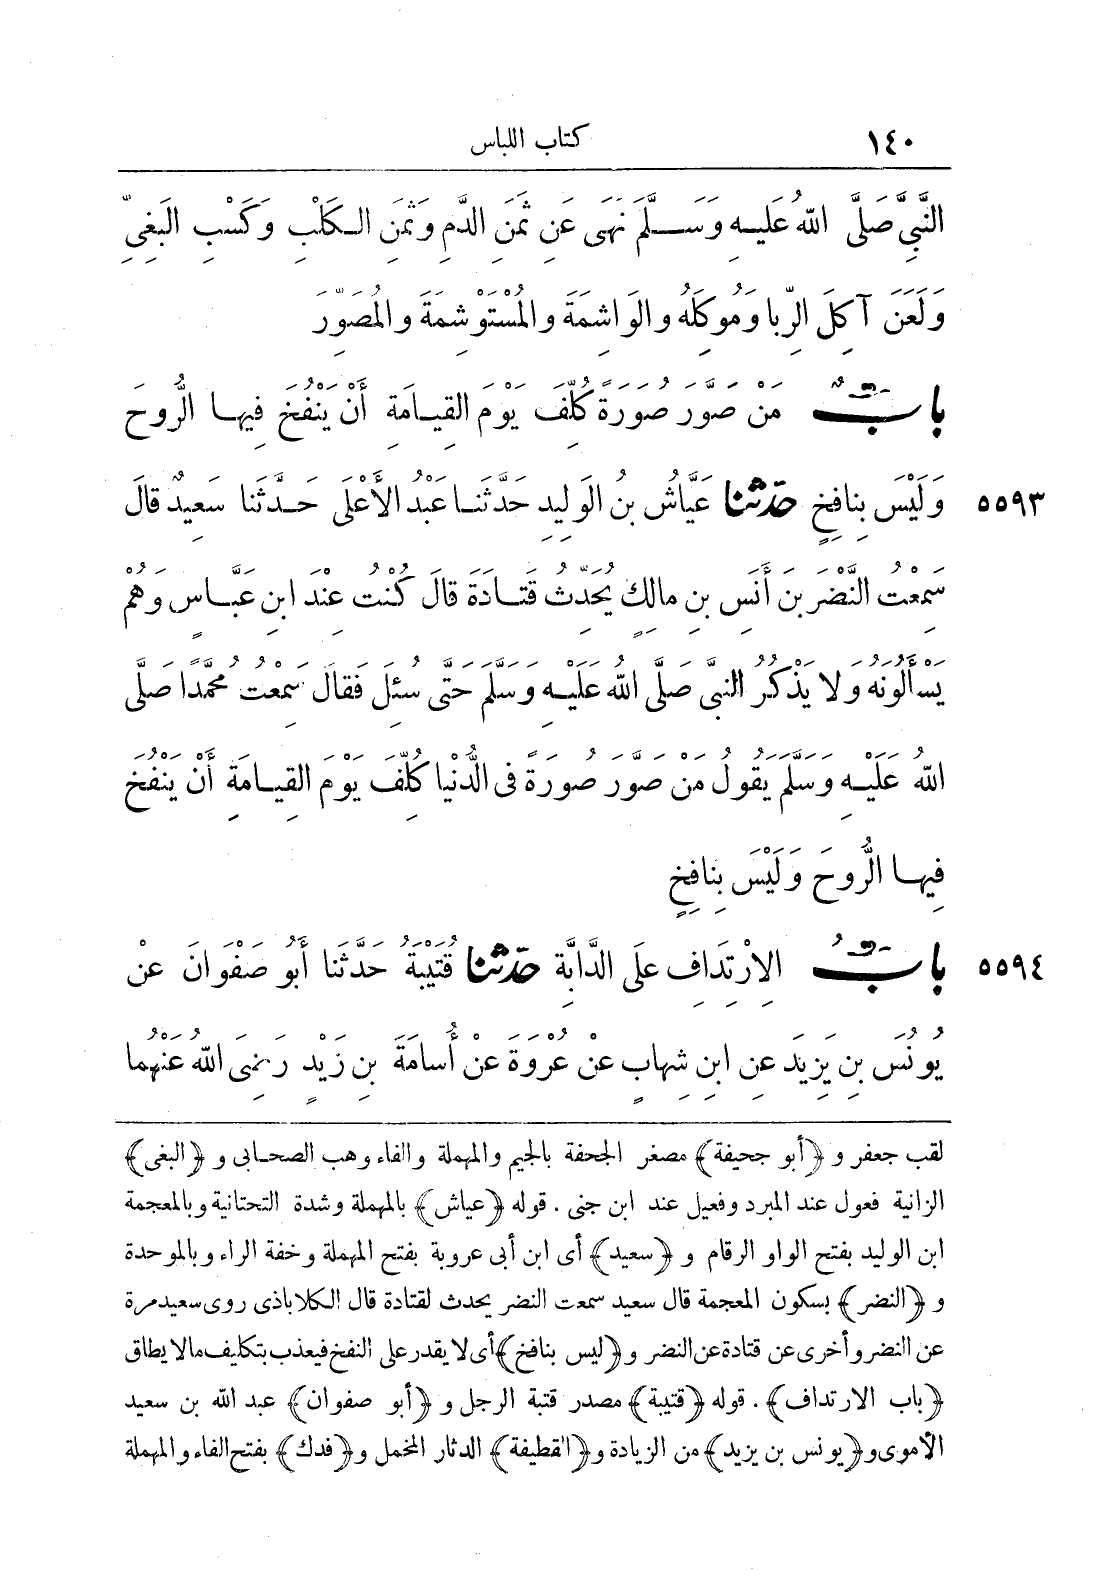 ١٤٠ كتاب اللباس
النَّبِيَّ صَلَّى اللهُ عَلَيهِ وَسَلَّمَ نَهَى عَنِ ثَمَنِ الدَّمِ وَثَمَنِ الكَلْبِ وَكَسْبِ الْبَغِيِّ
وَلَعَنَ آكِلَ الرِّبا وَمُوكِلَهُ والوَاشِمَةَ والْمُسْتَوْشِمَةَ والمُصَوِّرَ
بابٌ مَنْ صَوَّرَ صُورَةً كُلِّفَ يَوْمَ القِيامَةِ أَنْ يَنْفُخَ فِيها الرُّوحَ
٥٥٩٣ وَلَيْسَ بِنافِخٍ حدثنا عَيَّاشُ بنُ الوَلِيدِ حَدَّثَنا عَبْدُ الأَعْلَى حَدَّثَنا سَعِيدٌ قالَ
سَمِعْتُ النَّضْرَ بنَ أَنَسِ بنِ مالِكٍ يُحَدِّثُ قَتادَةَ قالَ كُنْتُ عِنْدَ ابنِ عَبَّاسٍ وَهُمْ
يَسْأَلُونَهُ ولا يَذْكُرُ النبيَّ صَلَّى اللهُ عَلَيْهِ وَسَلَّمَ حَتَّى سُئِلَ فَقالَ سَمِعْتُ محمَّدًا صَلَّى
اللهُ عَلَيْهِ وَسَلَّمَ يَقُولُ مَنْ صَوَّرَ صُورَةً فى الدُّنْيا كُلِّفَ يَوْمَ القِيامَةِ أَنْ يَنْفُخَ
فِيها الرُّوحَ وَلَيْسَ بِنافِخٍ
٥٥٩٤ بابُ الِارْتِدَافِ علَى الدَّابَّةِ حدثنا قُتَيْبَةُ حَدَّثَنا أَبُو صَفْوَانَ عَنْ
يُونُسَ بنِ يَزِيدَ عَنِ ابنِ شِهابٍ عَنْ عُرْوَةَ عَنْ أُسامَةَ بنِ زَيْدٍ رَضِىَ اللهُ عَنْهُما
لقب جعفر و ﴿أبو جحيفة﴾ مصغر الجحفة بالجيم والمهملة والفاء وهب الصحابى و ﴿البغى﴾
الزانية فعول عند المبرد وفعيل عند ابن جنى . قوله ﴿عياش﴾ بالمهملة وشدة التحتانية وبالمعجمة
ابن الوليد بفتح الواو الرقام و ﴿سعيد﴾ أى ابن أبى عروبة بفتح المهملة وخفة الراء وبالموحدة
و ﴿النضر﴾ بسكون المعجمة قال سعيد سمعت النضر يحدث لقتادة قال الكلاباذى روى سعيد مرة
عن النضر وأخرى عن قتادة عن النضر و﴿ليس بنافخ﴾ أى لا يقدر على النفخ فيعذب بتكليف مالا يطاق
﴿باب الارتداف﴾ . قوله ﴿قتيبة﴾ مصدر قتبة الرجل و ﴿أبو صفوان﴾ عبد الله بن سعيد
الأموى و﴿يونس بن يزيد﴾ من الزيادة و﴿القطيفة﴾ الدثار المخمل و﴿فدك﴾ بفتح الفاء والمهملة